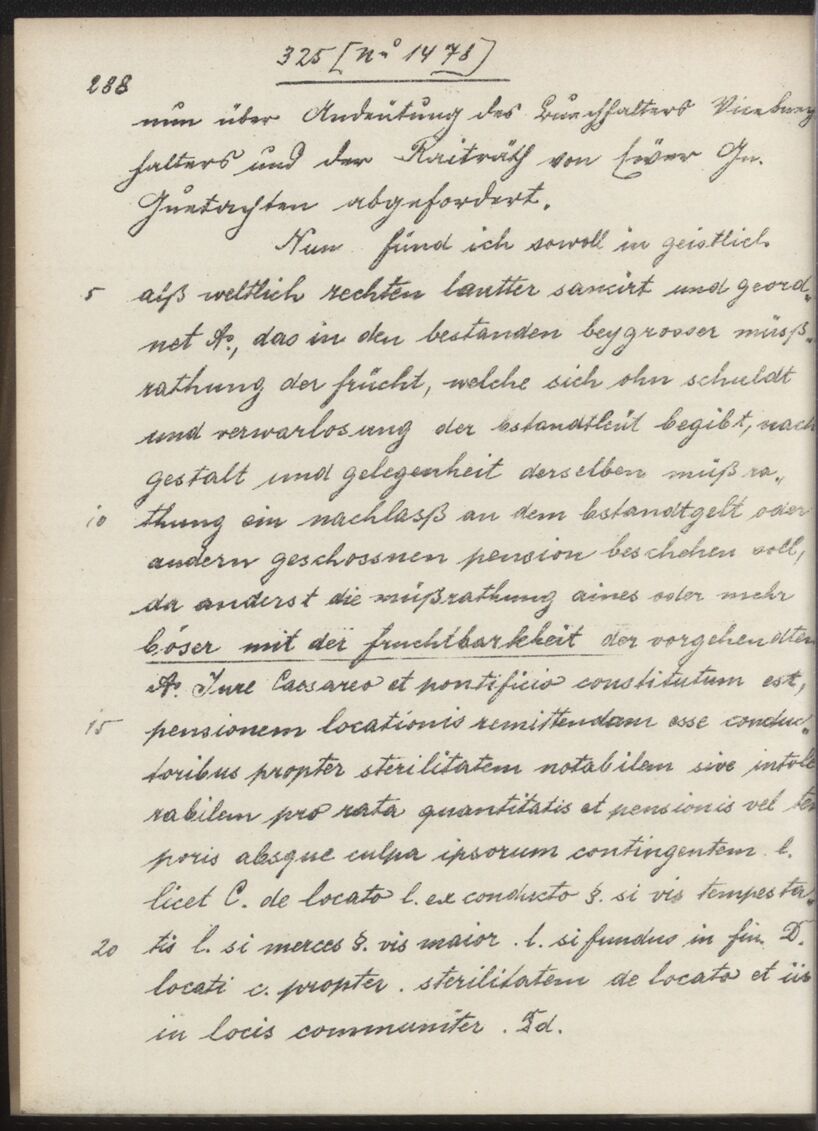 325 [No 1478]
288
nun über Andeutung des Buechhalters Vicebuech
halters und der Raiträth von Euer Gn.
Guetachten abgefordert.
Nun fünd ich sowoll in geistlich
5 alß weltlich rechten lautter sancirt und geord„
net Ao, das in den bestanden beygrosser müsß„
rathung der frücht, welche sich ohn schuldt
und verwarlosung der bstandtleüt begibt, nach
gestalt und gelegenheit derselben müßra„
10 thung ein nachlasß an dem bstandtgelt oder
andern geschossnen pension beschehen soll,
da anderst die müßrathung aines oder mehr
böser mit der fruchtbarkheit der vorgehendten
Ao. Jure Caesareo et pontificio constitutum est,
15 pensionem locationis remittendam esse conduc„
toribus propter sterilitatem notabilem sive intole
rabilem pro rata quantitatis et pensionis vel tem
poris absque culpa ipsorum contingentem l.
licet C. de locato l. ex conducto §. si vis tempesta„
20 tis l. si merces §. vis maior . l. si fundus in fin. D.
locati c. propter . sterilitatem de locato et iis
in locis communiter . Dd.